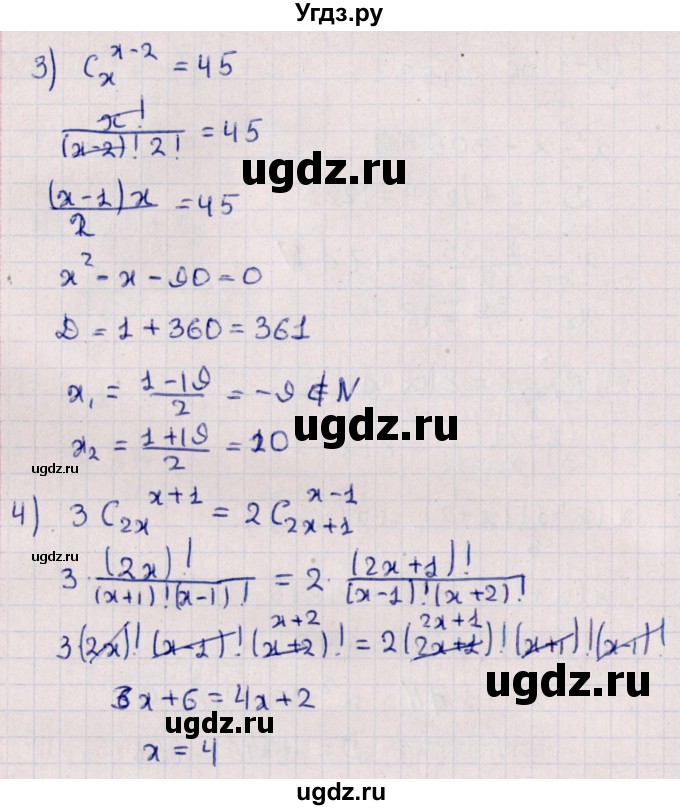 Угдз.ру
3) C_x^{x-2} = 45
x! / ((x-2)! 2!) = 45
ugdz.ru
(x-1)x / 2 = 45
x² - x - 90 = 0
D = 1 + 360 = 361
x₁ = (1-19)/2 = -9 ∉ N
ugdz.ru
x₂ = (1+19)/2 = 10
ugdz.ru
4) 3 C_{2x}^{x+1} = 2 C_{2x+1}^{x-1}
ugdz.ru
3 · (2x)! / ((x+1)! (x-1)!) = 2 · (2x+1)! / ((x-1)! (x+2)!)
x+2 2x+1
3 (2x)! (x-1)! (x+2)! = 2 (2x+1)! (x+1)! (x-1)!
ugdz.ru
3x + 6 = 4x + 2
ugdz.ru
x = 4
ugdz.ru